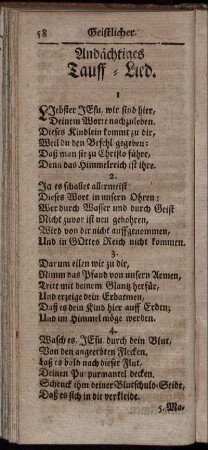 58 Geistlicher.
Andächtiges
Tauff-Lied.
1
LJebster JEsu, wir sind hier,
Deinem Worte nachzuleben.
Dieses Kindlein kommt zu dir,
Weil du den Befehl gegeben:
Daß man sie zu Christo führe,
Denn das Himmelreich ist ihre.
2.
Ja es schallet allermeist
Dieses Wort in unsern Ohren:
Wer durch Wasser und durch Geist
Nicht zuvor ist neu gebohren,
Wird von dir nicht auffgenommen,
Und in GOttes Reich nicht kommen.
3.
Darum eilen wir zu dir,
Nimm das Pfand von unsern Armen,
Tritt mit deinem Glantz herfür,
Und erzeige dein Erbarmen,
Daß es dein Kind hier auff Erden;
Und im Himmel möge werden.
4.
Wasch es, JEsu, durch dein Blut,
Von den angeerbten Flecken,
Laß es bald nach dieser Flut,
Deinen Purpurmantel decken,
Schenck ihm deiner Unschuld-Seide,
Daß es sich in die verkleide.
5. Ma-